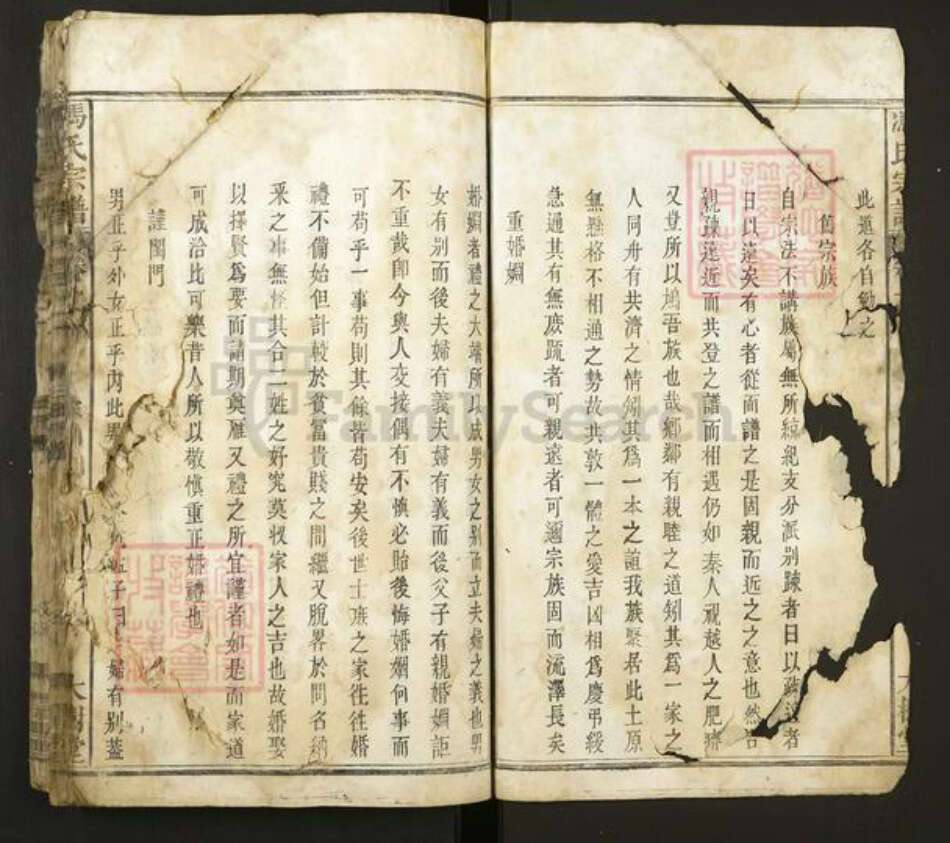 此道各自勉之
舊宗族
自宗法不講族屬無所綜紀支分派別疎者日以疎遠者
日以遠矣有心者從而譜之是固親而近之之意也然
親疎遠近而共登之譜而相遇仍如秦人視越人之肥瘠
又豈所以塲吾族也哉鄉鄰有親睦之道矧其爲一家之
人同舟有共濟之情矧其爲一本之誼我族聚居此土原
無懸格不相通之勢故共敦一體之愛吉凶相爲慶弔緩
急通其有無庶疏者可親遠者可邇宗族固而流澤長矣
重婚姻
婚姻者禮之大端所以成男女之別而立夫婦之義也男
女有別而後夫婦有義夫婦有義而後父子有親婚姻詎
不重哉卽今與人交接偶有不慎必貽後悔婚姻何事而
可苟乎一事苟則其餘皆苟安矣後世士族之家徃徃婚
禮不備始但計較於貧富貴賤之間繼又脫畧於問名納
采之事無怪其合二姓之好究莫收家人之吉也故婚娶
以擇賢爲要而請期奠雁又禮之所宜謹者如是而家道
可成洽比可樂昔人所以敬慎重正婚禮也
謹閨門
男正乎外女正乎內此 孟子曰 婦有別蓋
馮氏宗譜
大樹堂
馮氏宗譜
大樹堂
FamilySearch